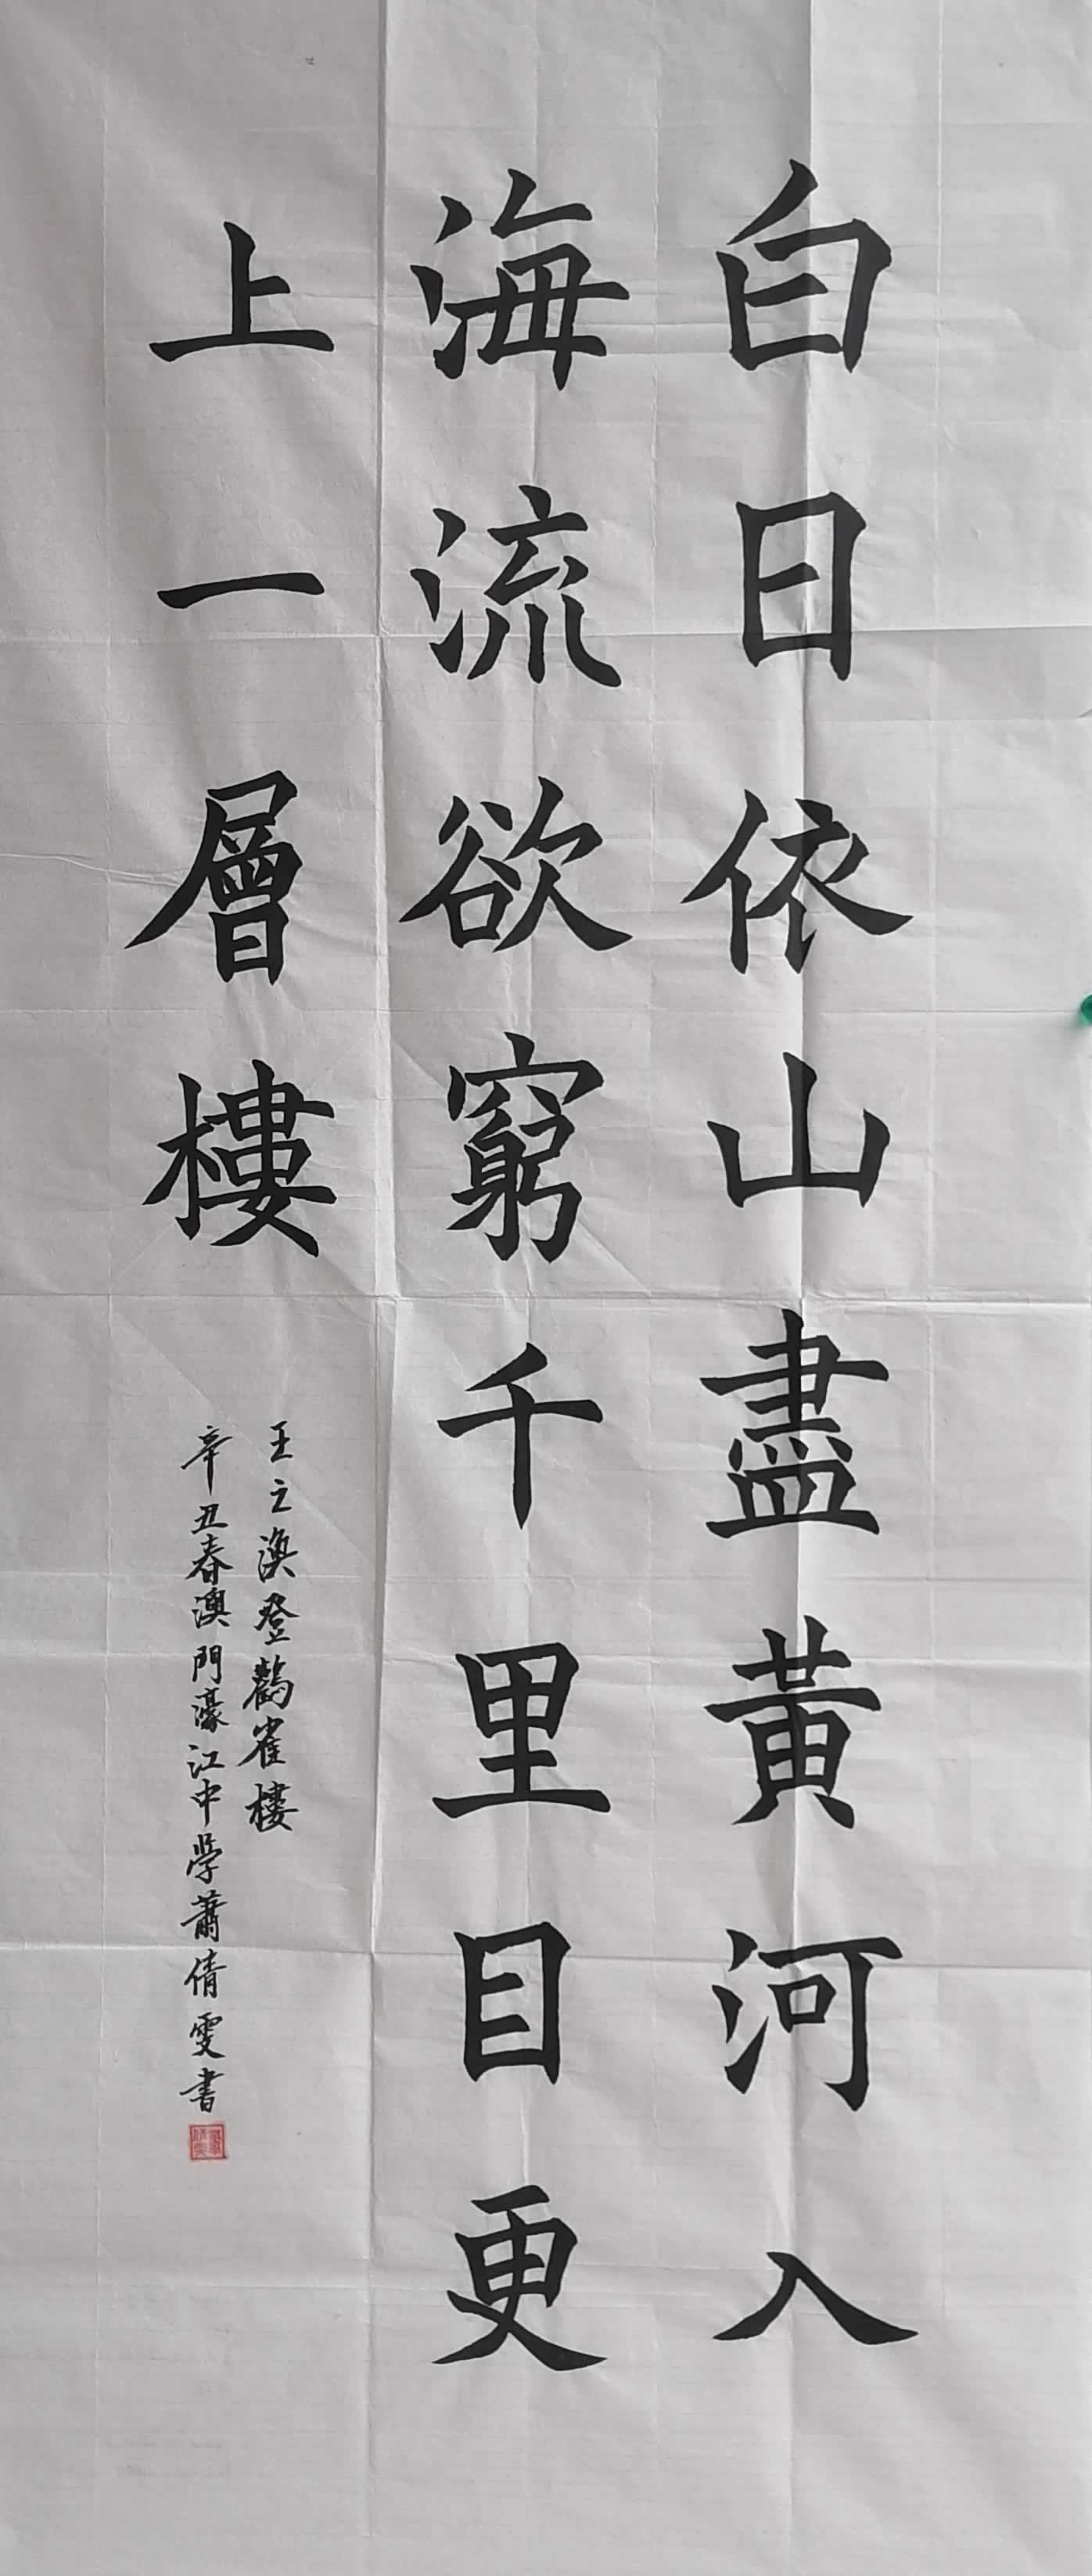 白日依山盡黃河入
海流欲窮千里目更
上一層樓
王之渙登鸛雀樓
辛丑春澳門濠江中學蕭倩雯書